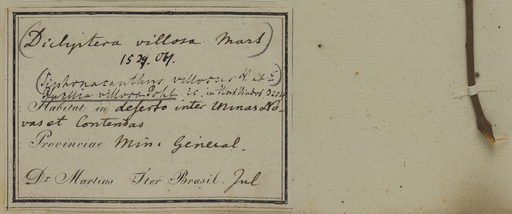 (Dicliptera villosa Mart)
1529. Og.
(Siphonacanthus villosus N. ab E.)
Ruellia villosa Pohl
Habitat in deserto inter Minas No-
vas et Contendas
Provinciae Min. General.
Dr. Martius Iter Brasil. Jul